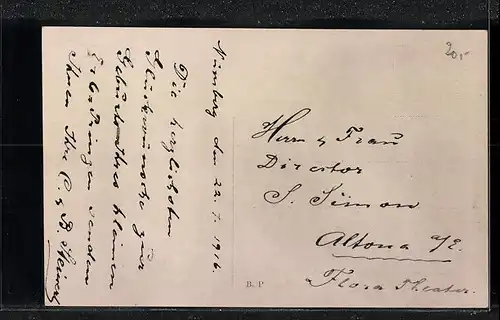 Nürnberg den 22.7.1916
Die herzlichsten
Glückwünsche zur
Geburt Ihres kleinen
senden
Ihnen Ihre C. & B.
20,-
Herrn & Frau
Director
S. Simon
Altona a/E.
Flora Theater.
B. P